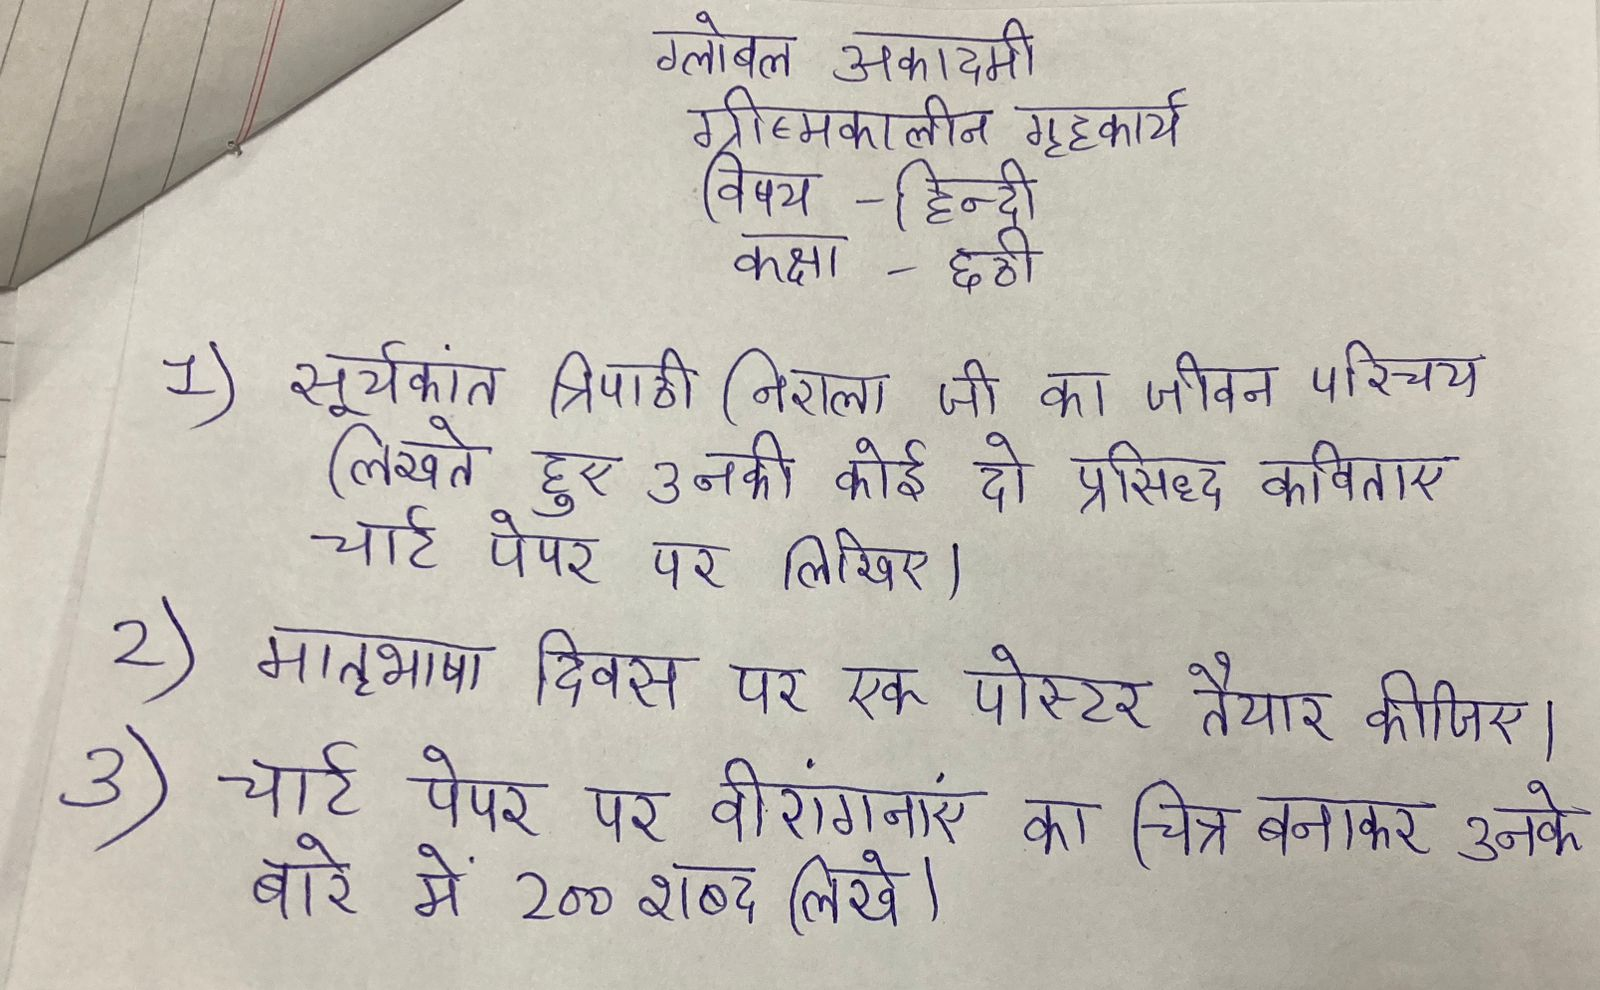 ग्लोबल अकादमी
ग्रीष्मकालीन गृहकार्य
विषय - हिन्दी
कक्षा - छठी
1) सूर्यकांत त्रिपाठी निराला जी का जीवन परिचय
लिखते हुए उनकी कोई दो प्रसिध्द कविताए
चार्ट पेपर पर लिखिए।
2) मातृभाषा दिवस पर एक पोस्टर तैयार कीजिए।
3) चार्ट पेपर पर वीरांगनाएं का चित्र बनाकर उनके
बारे में 200 शब्द लिखे।